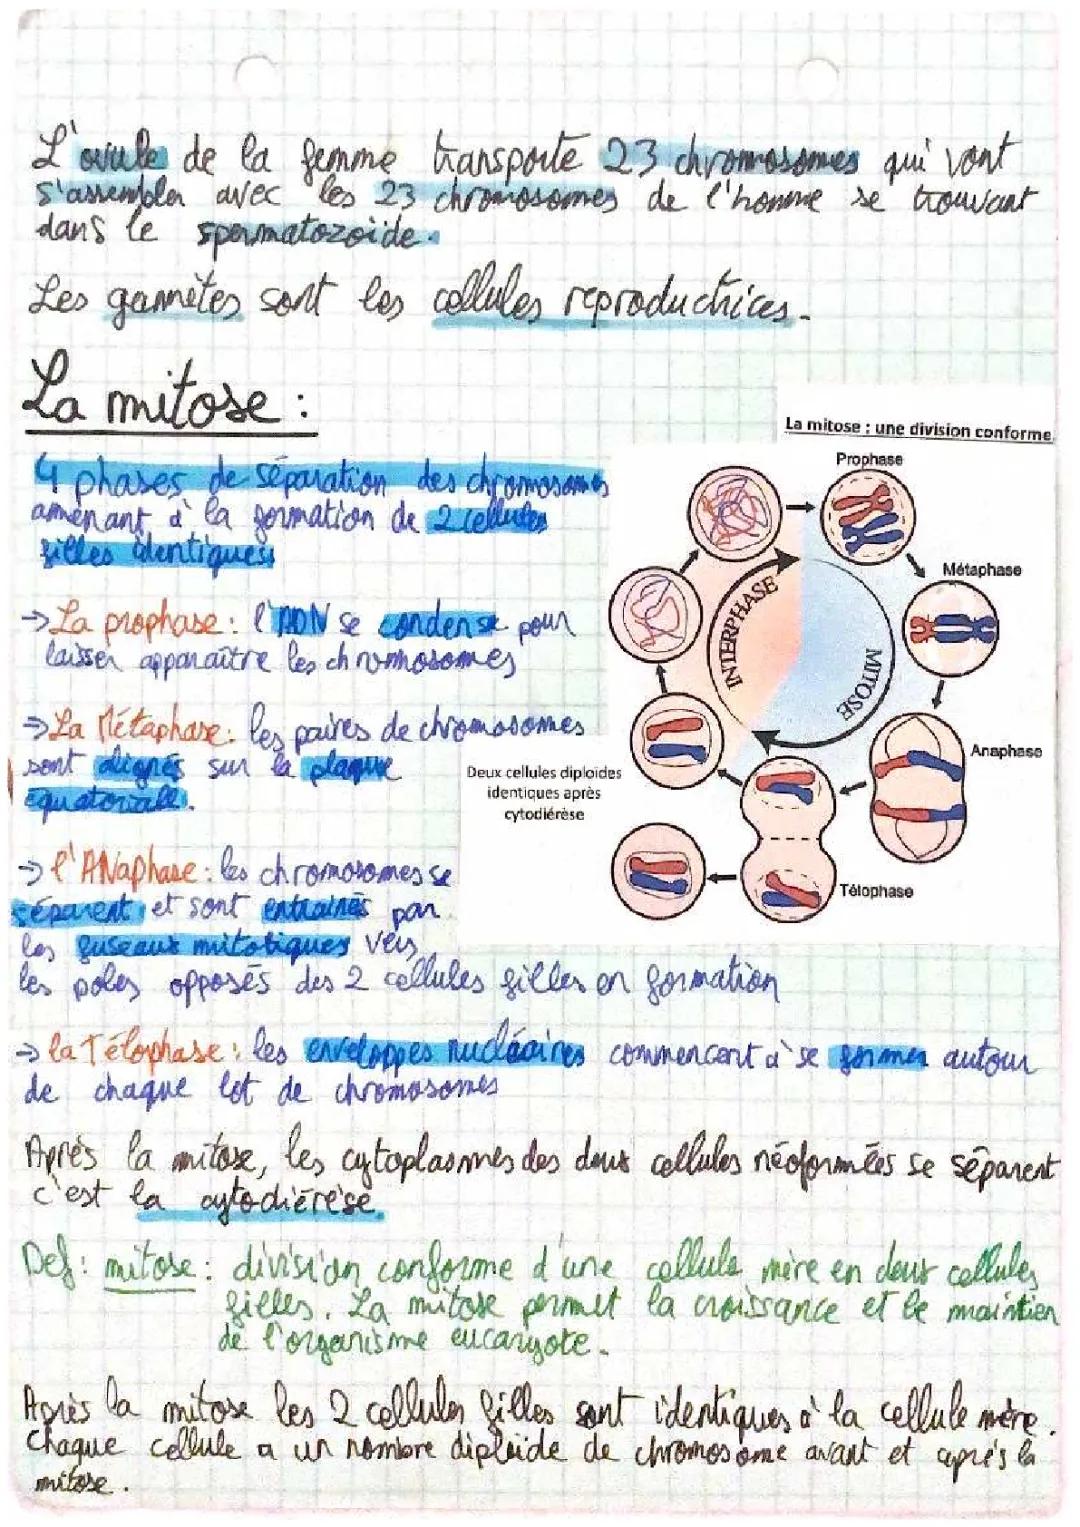 L'ovule de la femme transporte 23 chromosomes qui vont
s'assembler avec les 23 chromosomes de l'homme se trouvant
dans le spermatozoïde.
Les gamètes sont les cellules reproductrices.
La mitose :
4 phases de séparation des chromosomes
amenant à la formation de 2 cellules
filles identiques
→ La prophase : l'ADN se condense pour
laisser apparaître les chromosomes
→ La Métaphase : les paires de chromosomes
sont alignés sur la plaque
équatoriale.
→ l'ANaphase : les chromosomes se
séparent et sont entrainés par
les fuseaux mitotiques vers
les poles opposés des 2 cellules filles en formation
→ la Télophase : les enveloppes nucléaires commencent à se former autour
de chaque lot de chromosomes
La mitose : une division conforme
Prophase
Métaphase
INTERPHASE
MITOSE
Anaphase
Deux cellules diploïdes
identiques après
cytodiérèse
Télophase
Après la mitose, les cytoplasmes des deux cellules néoformées se séparent
c'est la cytodiérèse.
Def : mitose : division conforme d'une cellule mère en deux cellules
filles. La mitose permet la croissance et le maintien
de l'organisme eucaryote.
Après la mitose les 2 cellules filles sont identiques à la cellule mère.
Chaque cellule a un nombre diploïde de chromosome avant et après la
mitose.